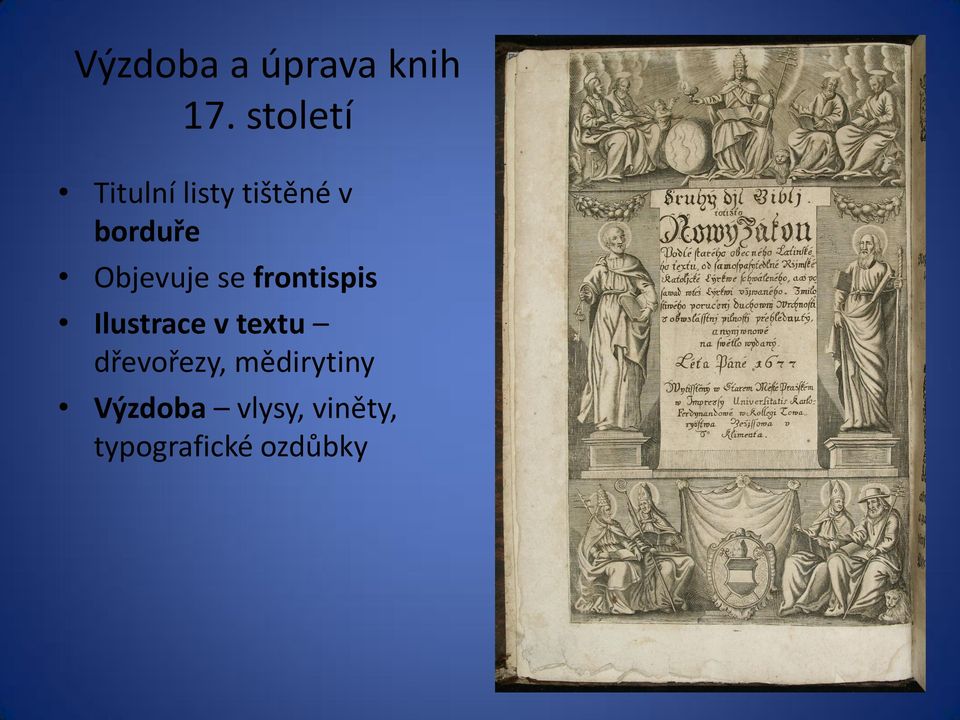 Výzdoba a úprava knih
17. století
• Titulní listy tištěné v
borduře
• Objevuje se frontispis
• Ilustrace v textu –
dřevořezy, mědirytiny
• Výzdoba – vlysy, viněty,
typografické ozdůbky
Druhý djl Biblj.
totižto
Nowý Zákon
Podlé starého obecného Latinské
ho textu, od samospasytedlné Ržjmské
Katolické Cýrkwe schwáleného, a až po
sawad w též Cýrkwi vžjwaného. Z milo
stiwého poručenj duchownj Wrchnosti
s obwzlásstnj pilnosti přehlednutý,
a nynj w nowě
na swětlo wydaný.
Léta Páně 1677
Wytisstěný w Starém Městě Pražském
w Impressý Universitatis Karlo-
Ferdynandowé w Kollegi Towa
rysstwa Gežjssowa v
S. Klimenta.